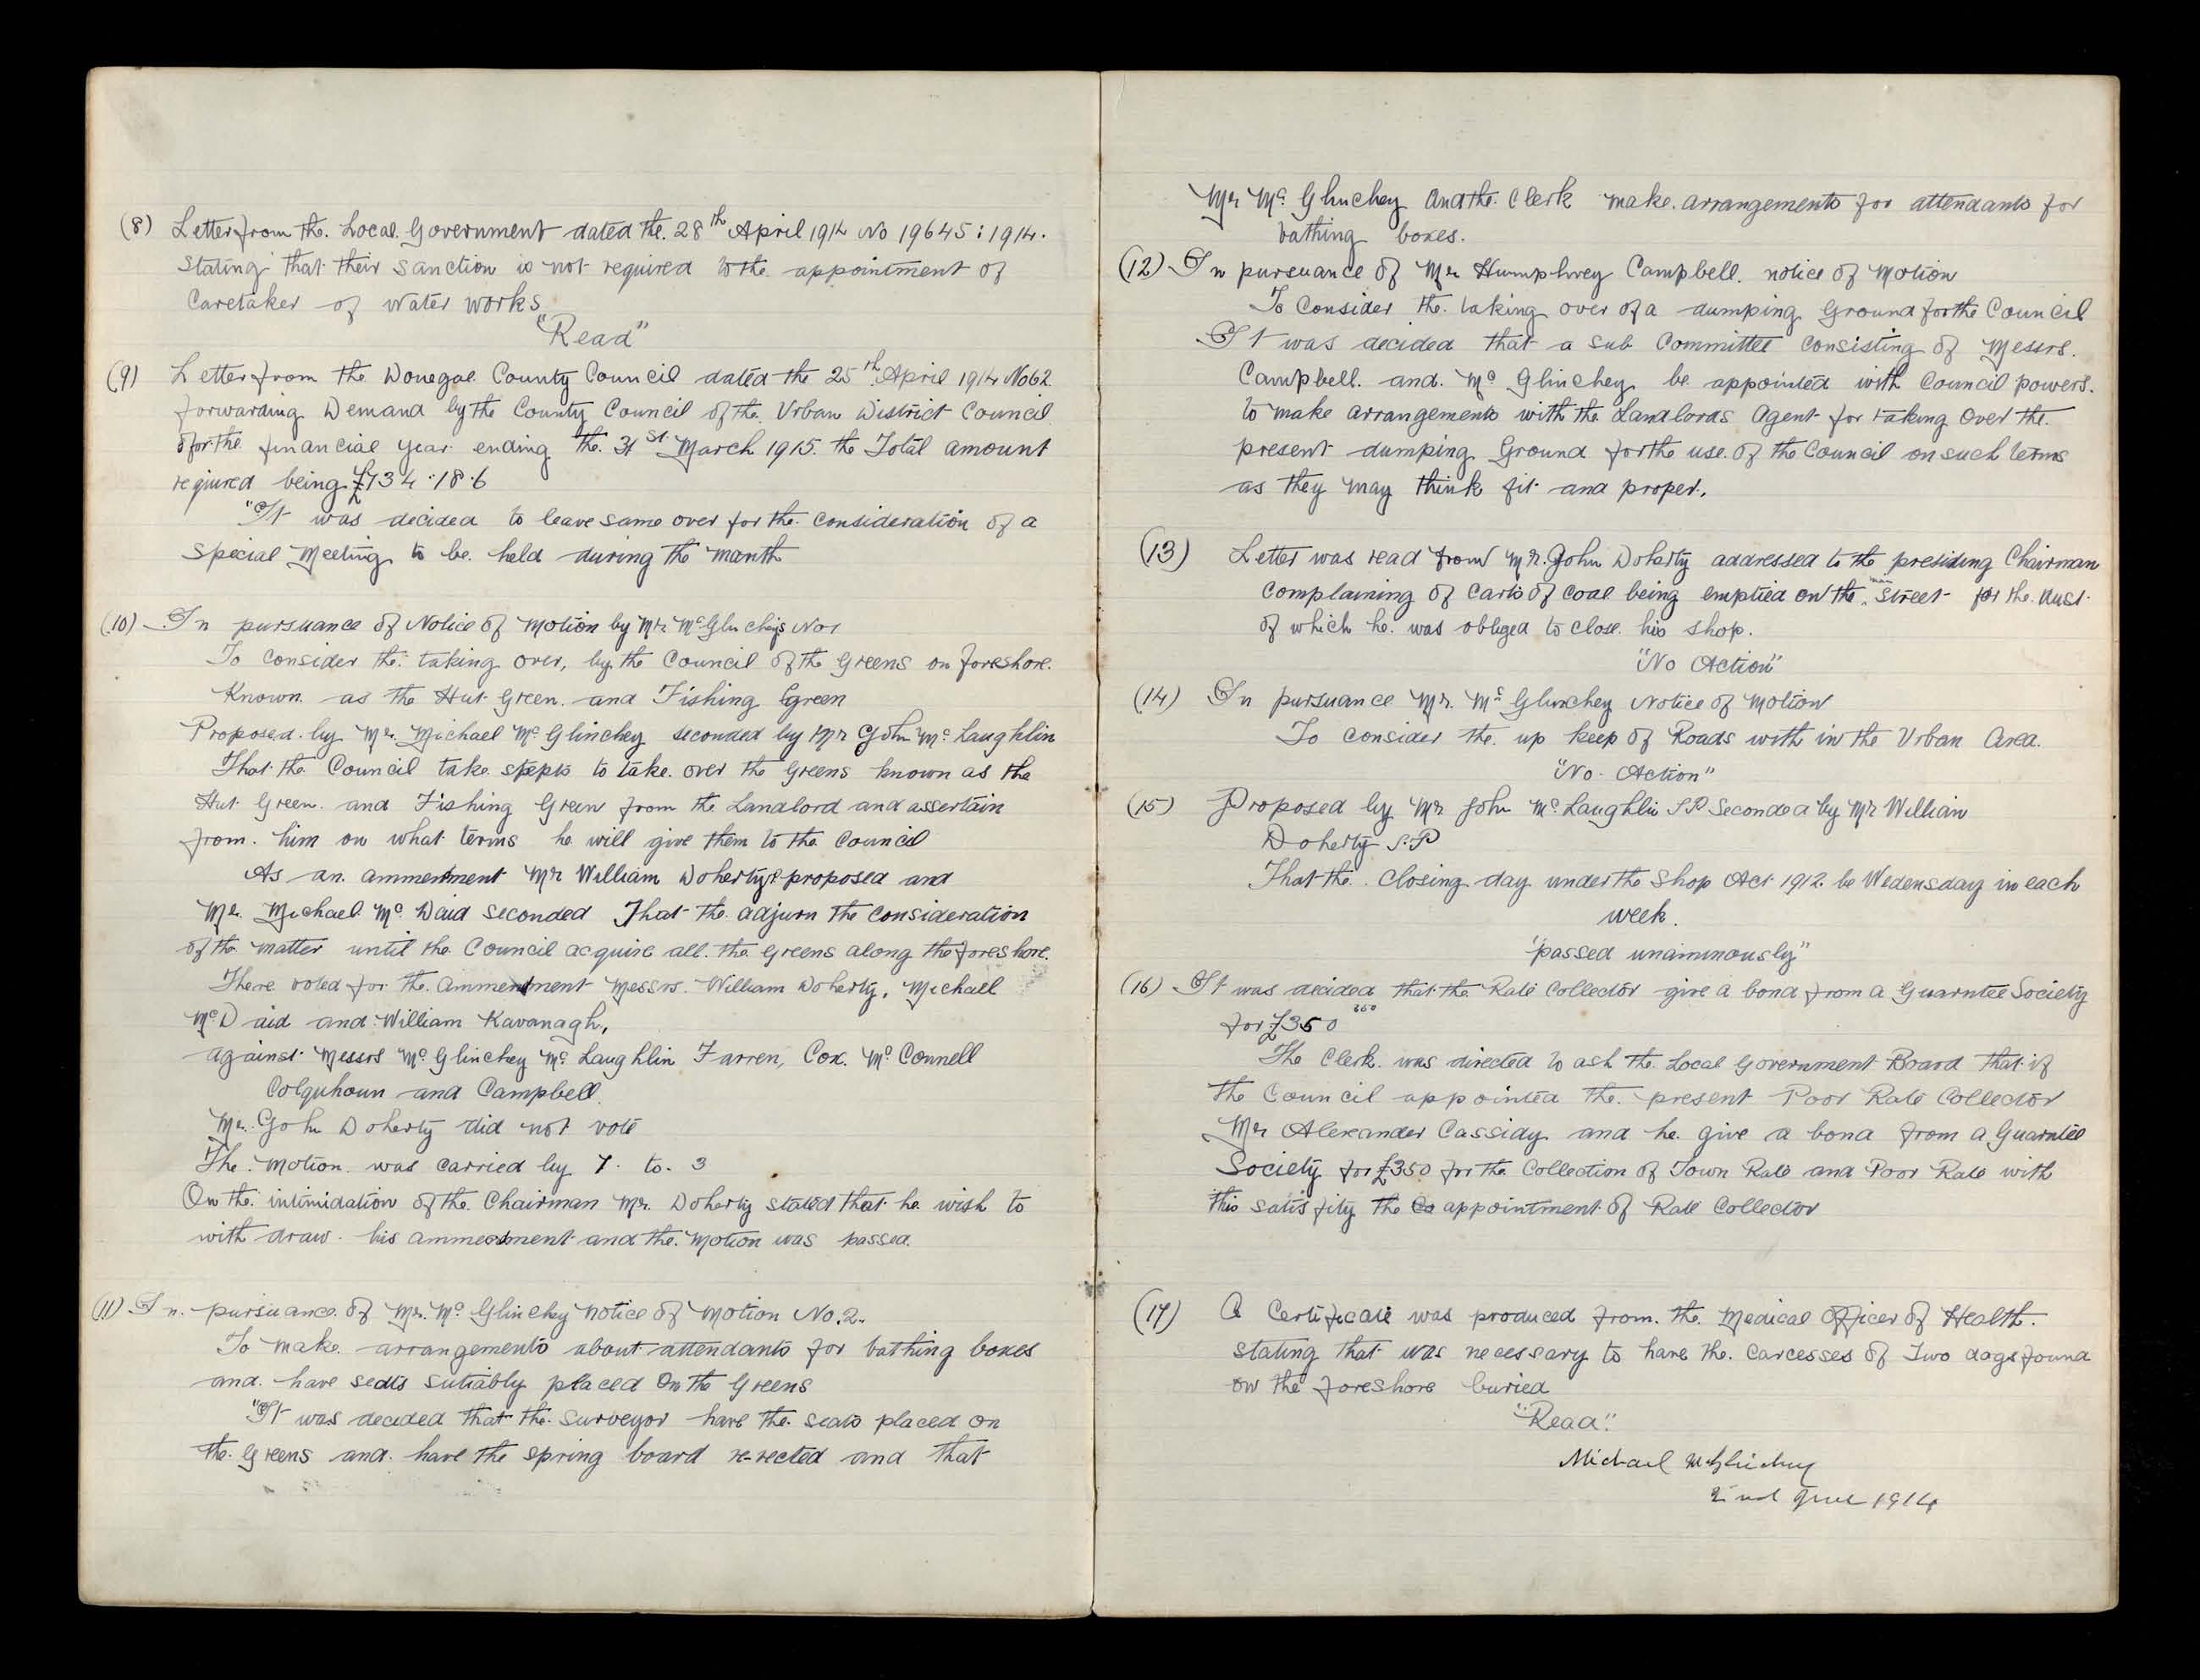 (8) Letter from the Local Government dated the 28th April 1914 No 19645:1914.
stating that their sanction is not required to the appointment of
Caretaker of Water works
"Read"
(9) Letter from the Donegal County Council dated the 25th April 1914 No 62
forwarding Demand by the County Council of the Urban District Council
for the financial year ending the 31st March 1915. the Total amount
required being £734:18.6
"It was decided to leave same over for the consideration of a
Special Meeting to be held during the month
(10) In pursuance of Notice of Motion by Mr McGlinchys No 1
To consider the taking over, by the Council of the Greens on foreshore.
Known as the Hut Green and Fishing Green
Proposed by Mr Michael McGlinchey seconded by Mr John McLaughlin
That the Council take stepts to take over the Greens known as the
Hut Green and Fishing Green from the Landlord and assertain
from him on what terms he will give them to the Council
As an ammendment Mr William Doherty proposed and
Mr Michael McDaid seconded That the adjurn the consideration
of the matter until the Council acquire all the Greens along the foreshore.
There voted for the ammendment Messrs William Doherty, Michael
McDaid and William Kavanagh,
against Messrs McGlinchey McLaughlin Farren, Cox. McConnell
Colquhoun and Campbell.
Mr John Doherty did not vote
The Motion was carried by 7 to 3
On the intimidation of the Chairman Mr. Doherty stated that he wish to
with draw his ammendment and the Motion was passed.
(11) In pursuance of Mr. McGlinchey notice of Motion No. 2.
To make arrangements about attendants for bathing boxes
and have seats sutiably placed On the Greens
"It was decided that the Surveyor have the seats placed on
the Greens and have the spring board re-rected and that
Mr McGlinchey and the Clerk make arrangements for attendants for
bathing boxes.
(12) In pursuance of Mr Humphrey Campbell notice of Motion
To Consider the taking over of a dumping Ground for the Council
It was decided that a Sub Committee consisting of Messrs.
Campbell and McGlinchey be appointed with Council powers.
to make arrangements with the Landlords Agent for taking over the
present dumping Ground for the use of the Council on such terms
as they may think fit and proper.
(13) Letter was read from Mr. John Doherty addressed to the presiding Chairman
Complaining of Carts of coal being emptied on the main street for the dust
of which he was obliged to close his shop.
"No Action"
(14) In pursuance Mr. McGlinchey Notice of Motion
To consider the up keep of Roads with in the Urban Area.
"No Action"
(15) Proposed by Mr John McLaughlin J.P Seconded by Mr William
Doherty J.P
That the Closing day under the Shop Act 1912 be Wedensday in each
week.
"passed unaminously"
(16) It was decided that the Rate Collector give a bond from a Guarntee Society
for £350
The Clerk was directed to ask the Local Government Board that if
the Council appointed the present Poor Rate Collector
Mr Alexander Cassidy and he give a bond from a Guarntee
Society for £350 for the Collection of Town Rate and Poor Rate with
this satisfity the appointment of Rate Collector
(17) A Certificate was produced from the Medical Officer of Health.
stating that was necessary to have the Carcesses of Two dogs found
on the foreshore buried
"Read"
Michael McGlinchey
2nd June 1914